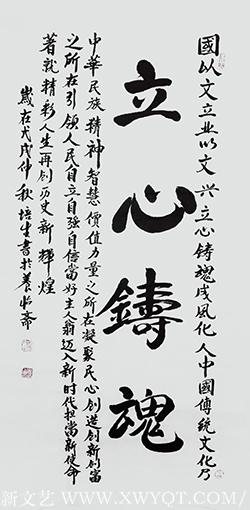 國以文立业以文兴立心铸魂成風化人中國傳統文化乃
立心鑄魂
中华民族精神智慧價值力量之所在凝聚民心创造创新创富
之所在引领人民自立自强自信當好主人翁迈入新时代担當新使命
著就精彩人生再创历史新輝煌
歲在戊戌仲秋培生書於養怡斋
新文艺 WWW.XWYQT.COM